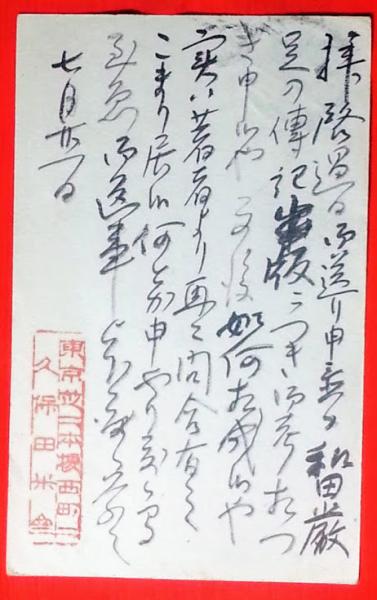 拝啓過日御送り申上候 和田巌
足の傳記出版につき御考おつ
き申候や 其後如何相成候や
実は著者より再々問合有之
こまり居候何とか申やり度候間
至急御返事
七月廿一日
東京芝二本榎西町二
久保田米